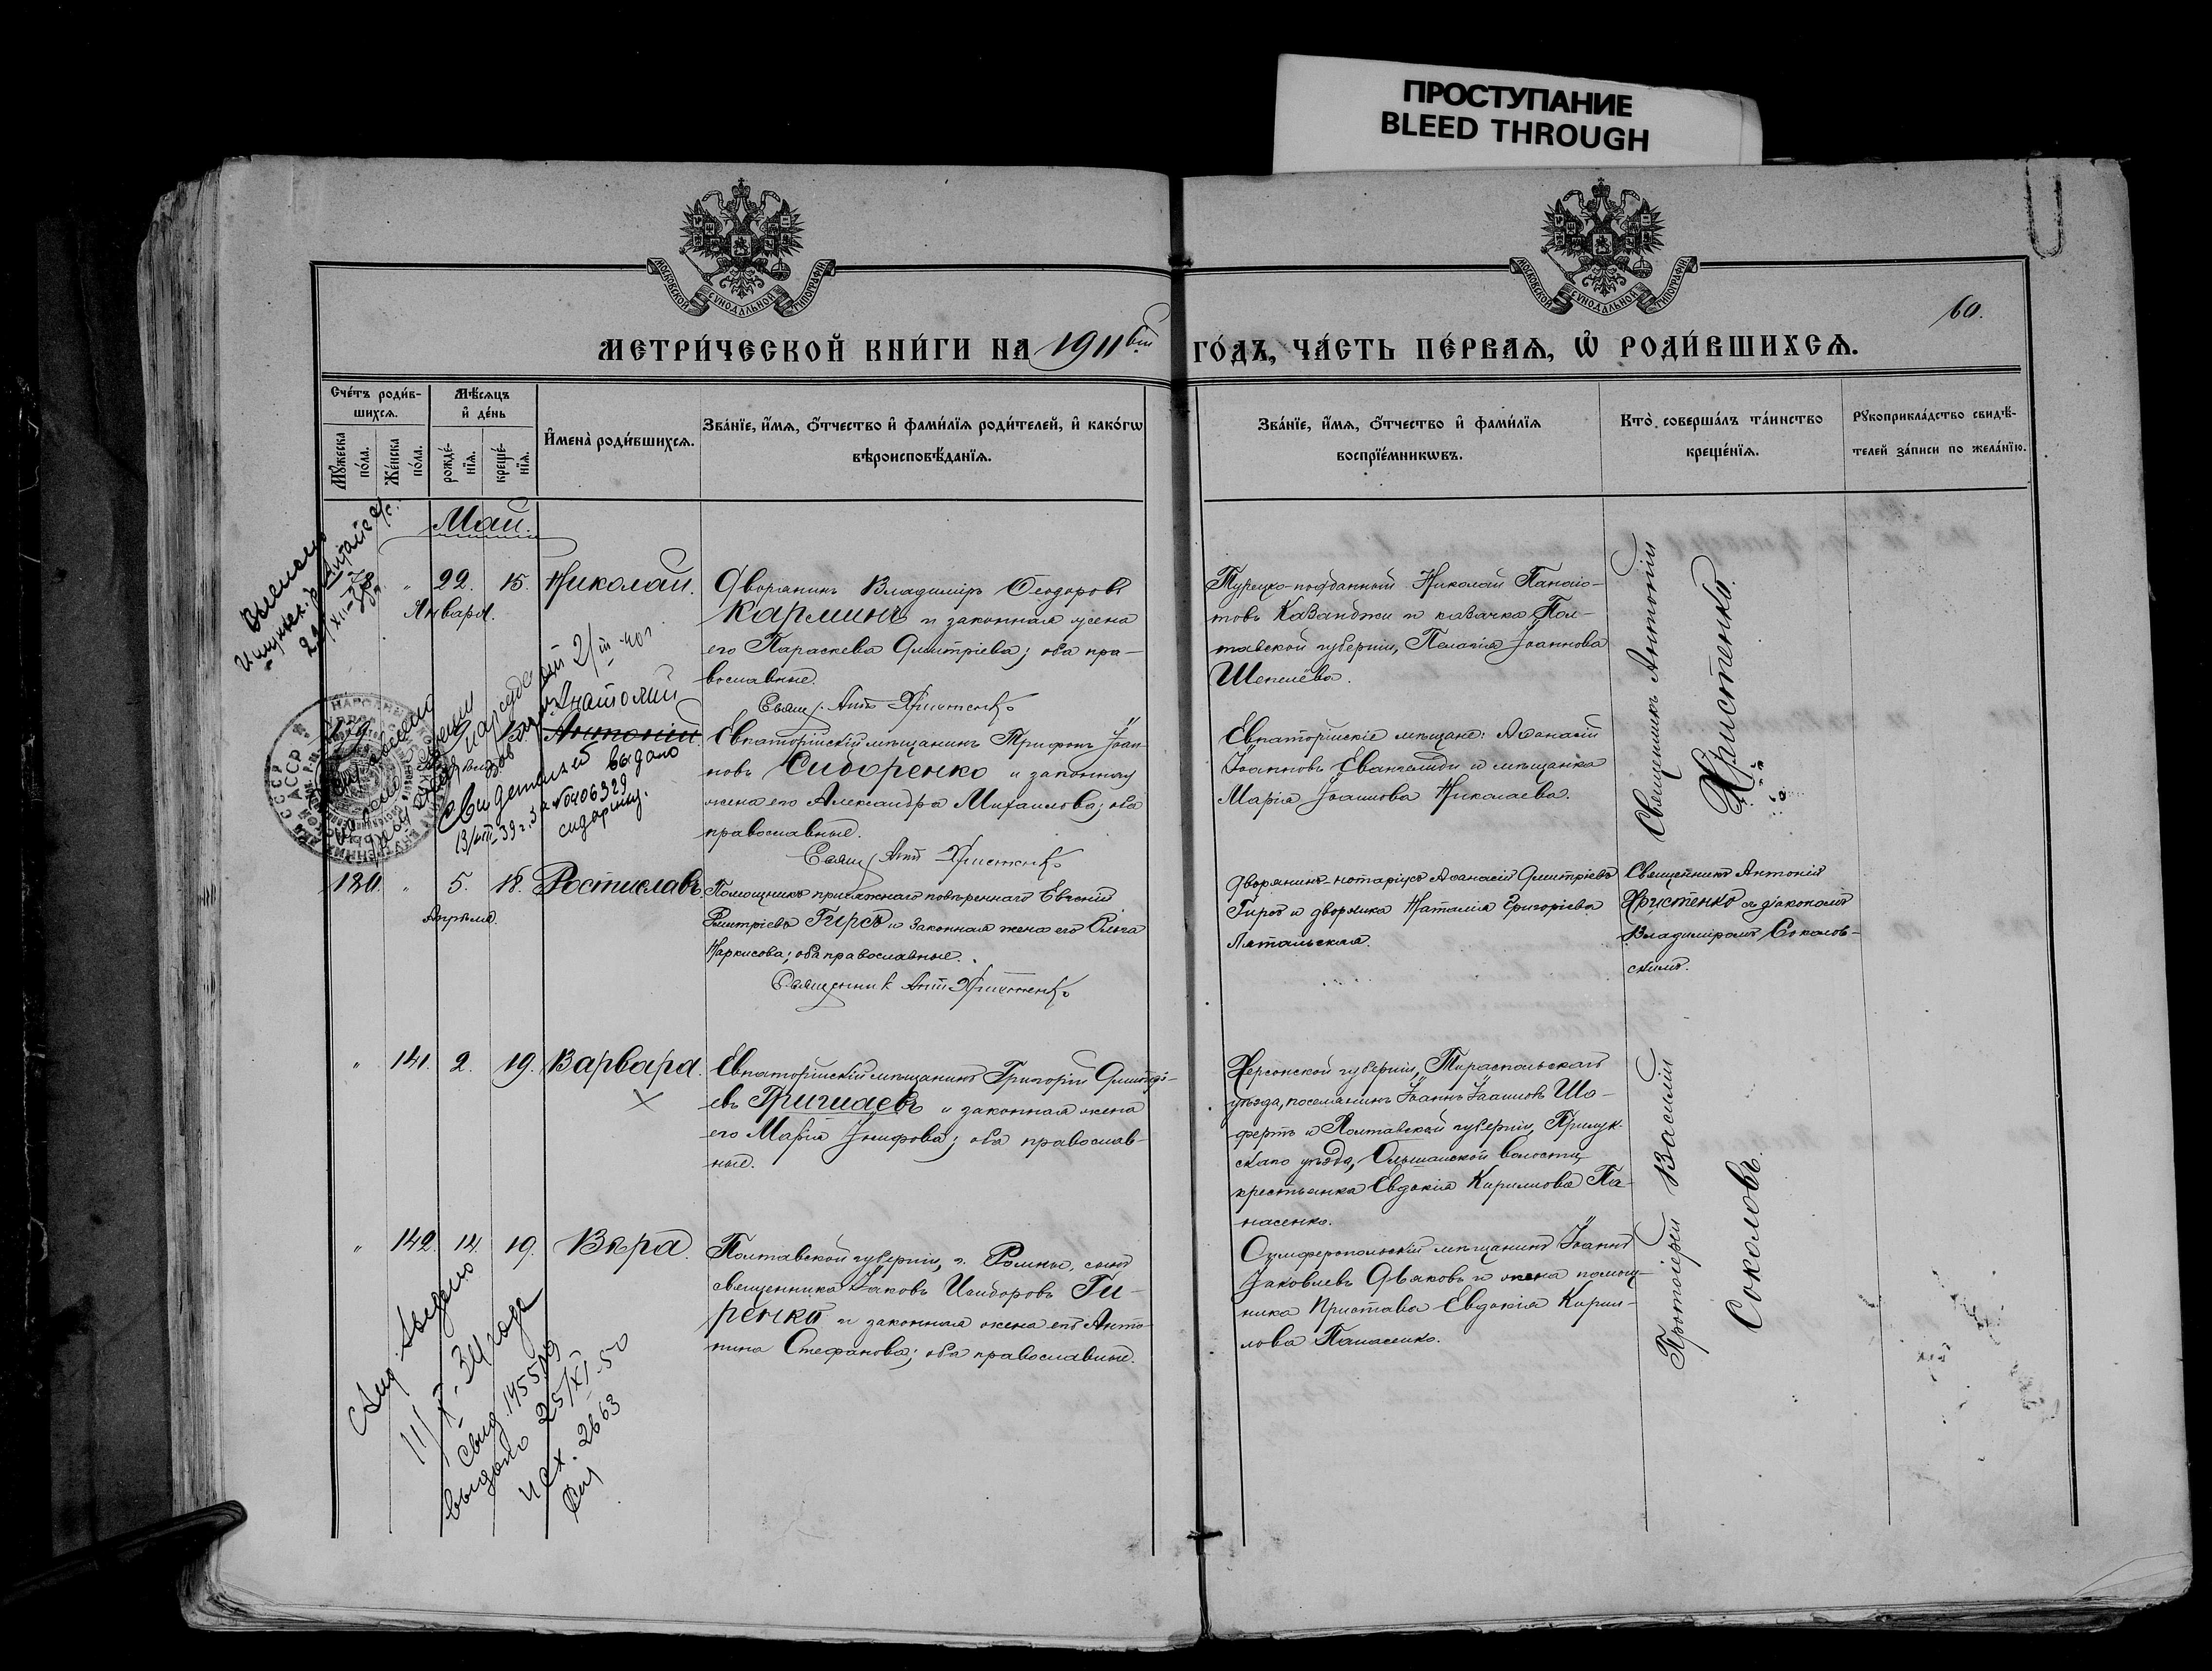 ПРОСТУПАНИЕ
BLEED THROUGH
МОСКОВСКОЙ СѴНОДАЛЬНОЙ ТИПОГРАФІИ
МОСКОВСКОЙ СѴНОДАЛЬНОЙ ТИПОГРАФІИ
60.
МЕТРИ́ЧЕСКОЙ КНИ́ГИ НА 1911 ГО́ДЪ, ЧА́СТЬ ПЕ́РВАѦ, Ѡ҆ РОДИ́ВШИХСѦ.
Сче́тъ роди́в-
шихсѧ.
Мꙋ́жеска
по́ла.
Же́нска
по́ла.
Мѣ́сѧцъ
и҆ де́нь
рожде́-
нїѧ.
креще́-
нїѧ.
И҆мена̀ роди́вшихсѧ.
Зва́нїе, и҆́мѧ, ѻ҆́тчество и҆ фами́лїѧ роди́телей, и҆ како́гѡ
вѣроисповѣ́данїѧ.
Зва́нїе, и҆́мѧ, ѻ҆́тчество и҆ фами́лїѧ
воспрїе́мникѡвъ.
Кто̀ соверша́лъ та́инство
креще́нїѧ.
Рꙋкоприкла́дство свидѣ́-
телей за́писи по жела́нїю.
Май.
" 22. 15. Николай.
Января.
Дворянинъ Владиміръ Ѳеодоровъ
Карминъ и законная жена
его Параскева Дмитріева; оба пра-
вославные.
Свящ. Ант. Христенко
Турецко-подданный Николай Панаіо-
товъ Казанджи и казачка Пол-
тавской губерніи, Пелагія Іоаннова
Шепелева.
Священникъ Антоній
Христенко.
15. Антоній.
Анатолий
Евпаторійскій мѣщанинъ Трифонъ Іоан-
новъ Сидоренко и законная
жена его Александра Михаилова; оба
православные.
Свящ. Ант. Христенко
Евпаторійскіе мѣщане: Аѳанасій
Іоанновъ Евангелиди и мѣщанка
Марія Іоаннова Николаева.
свидетельство выдано
13/VIII-39 г. № 0406329
180. " 5. 18. Ростиславъ.
Апрѣля.
Помощникъ присяжнаго повѣреннаго Евгеній
Дмитріевъ Гирсъ и законная жена его Ольга
Наркисова; оба православные.
Священник Ант. Христенко
Дворянинъ-нотаріусъ Аѳанасій Дмитріевъ
Гирсъ и дворянка Наталія Григорієва
Священникъ Антоній
Христенко съ діакономъ
Владиміромъ Соколов-
скимъ.
" 141. 2. 19. Варвара.
Евпаторійскій мѣщанинъ Григорій Дмитрі-
евъ Григшаевъ и законная жена
его Марія Іосифова; оба православ-
ные.
Херсонской губерніи, Тираспольскаго
уѣзда, поселянинъ Іоаннъ Іоанновъ Шо-
фертъ и Полтавской губерніи, Прилук-
скаго уѣзда, Ольшанской волости,
крестьянка Евдокія Кириллова Па-
насенко.
Протоіерей Василій
Соколовъ.
" 142. 14. 19. Вѣра.
Полтавской губерніи, г. Ромны, сынъ
священника Іаковъ Исидоровъ Ги-
ренко и законная жена его Анто-
нина Стефанова; оба православные.
Симферопольскій мѣщанинъ Іоаннъ
Іаковлевъ Дьяковъ и жена помощ-
ника Пристава Евдокія Кирил-
лова Панасенко.
11/X-34 года
свид. 145519
выдано 25/XI-50
исх. 2663